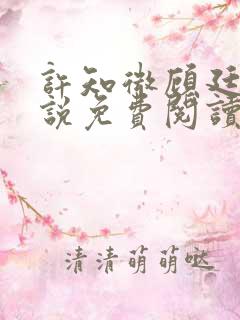 許知微顧廷
說免費閱讀
清清萌萌噠